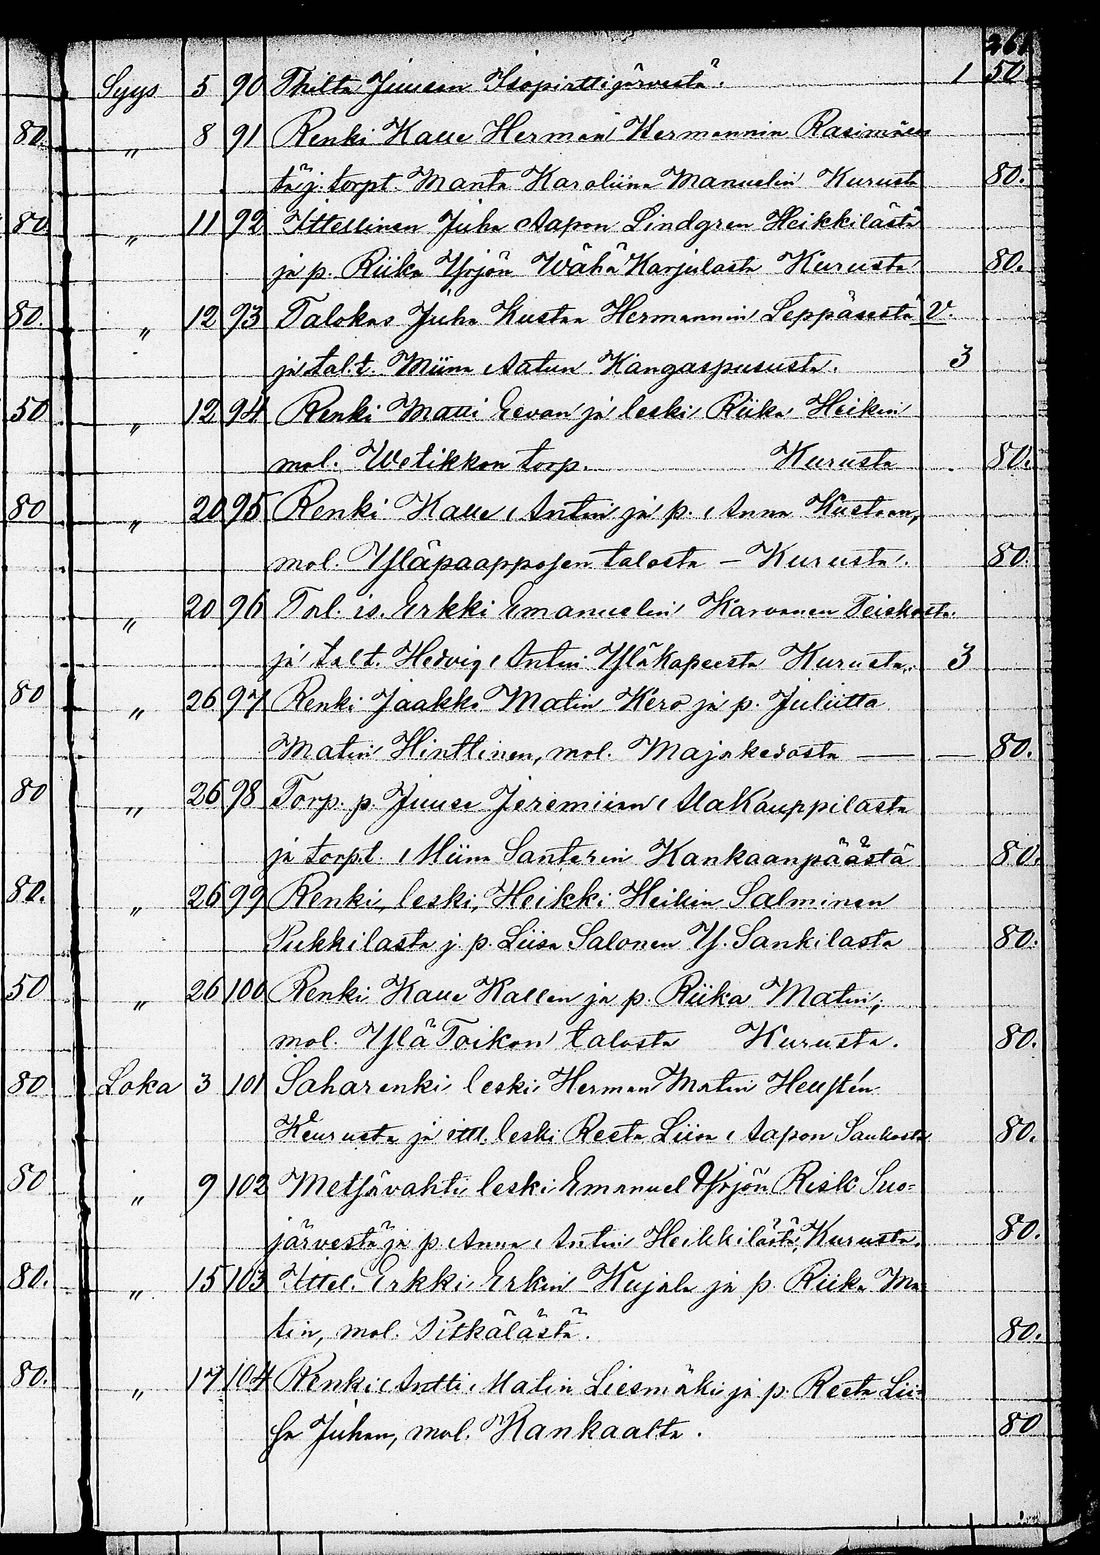 261
Syys 5 90 Juusen Isopirttijärvestä. 1 50
80. " 8 91 Renki Kalle Herman Hermannin Rasimäes
tä j. torpt. Manta Karoliina Manuelin Kurusta 80.
80. " 11 92 Ittellinen Juha Aapon Lindgren Heikkilästä
ja p. Riika Yrjön Wähä Karjulasta Kurusta 80.
80. " 12 93 Talokas Juha Kustaa Hermannin Leppäsestä V.
ja tal.t. Miina Aatun Kangaspususta. 3
50 " 12 94 Renki Matti Eevan ja leski Riika Heikin
mol. Wetikkon torp. Kurusta 80.
80 " 20 95 Renki Kalle Antin ja p. Anna Kustaan,
mol. Yläpaapposen talosta – Kurusta. 80.
" 20 96 Tal. is. Erkki Emanuelin Karvonen Teiskosta
ja tal t. Hedvig Antin Yläkapeesta Kurusta. 3
80 " 26 97 Renki Jaakko Matin Kero ja p. Juliitta
Matin Hinttinen, mol. Majakedosta — — 80.
80 " 26 98 Torp. p. Juuse Jeremiian Alakauppilasta
ja torp.t. Miina Santerin Kankaanpäästä 80.
80. " 26 99 Renki, leski, Heikki Heikin Salminen
Pukkilasta j. p. Liisa Salonen Y. Sankilasta 80.
50 " 26 100 Renki Kalle Kallen ja p. Riika Matin,
mol. Ylä Toikon talosta Kurusta. 80.
80 Loka 3 101 Saharenki leski Herman Matin
Keurusta ja ittl. leski Reeta Liisa Aapon Saukosta 80.
80 " 9 102 Metsävahti leski Emanuel Yrjön Risk Suo-
järvestä ja p. Anna Antin Heikkilästä, Kurusta. 80.
80. " 15 103 Ittel. Erkki Erkin Kujala ja p. Riika Ma-
tin, mol. Pitkälästä. 80.
80. " 17 104 Renki Antti Matin Liesmäki ja p. Reeta Lii-
sa Juhan, mol. Kankaalta. 80